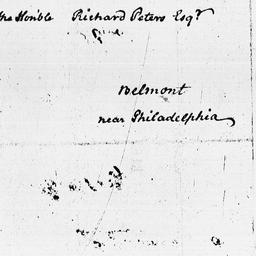 the Hon'ble Richard Peters Esqr
Belmont
near Philadelphia